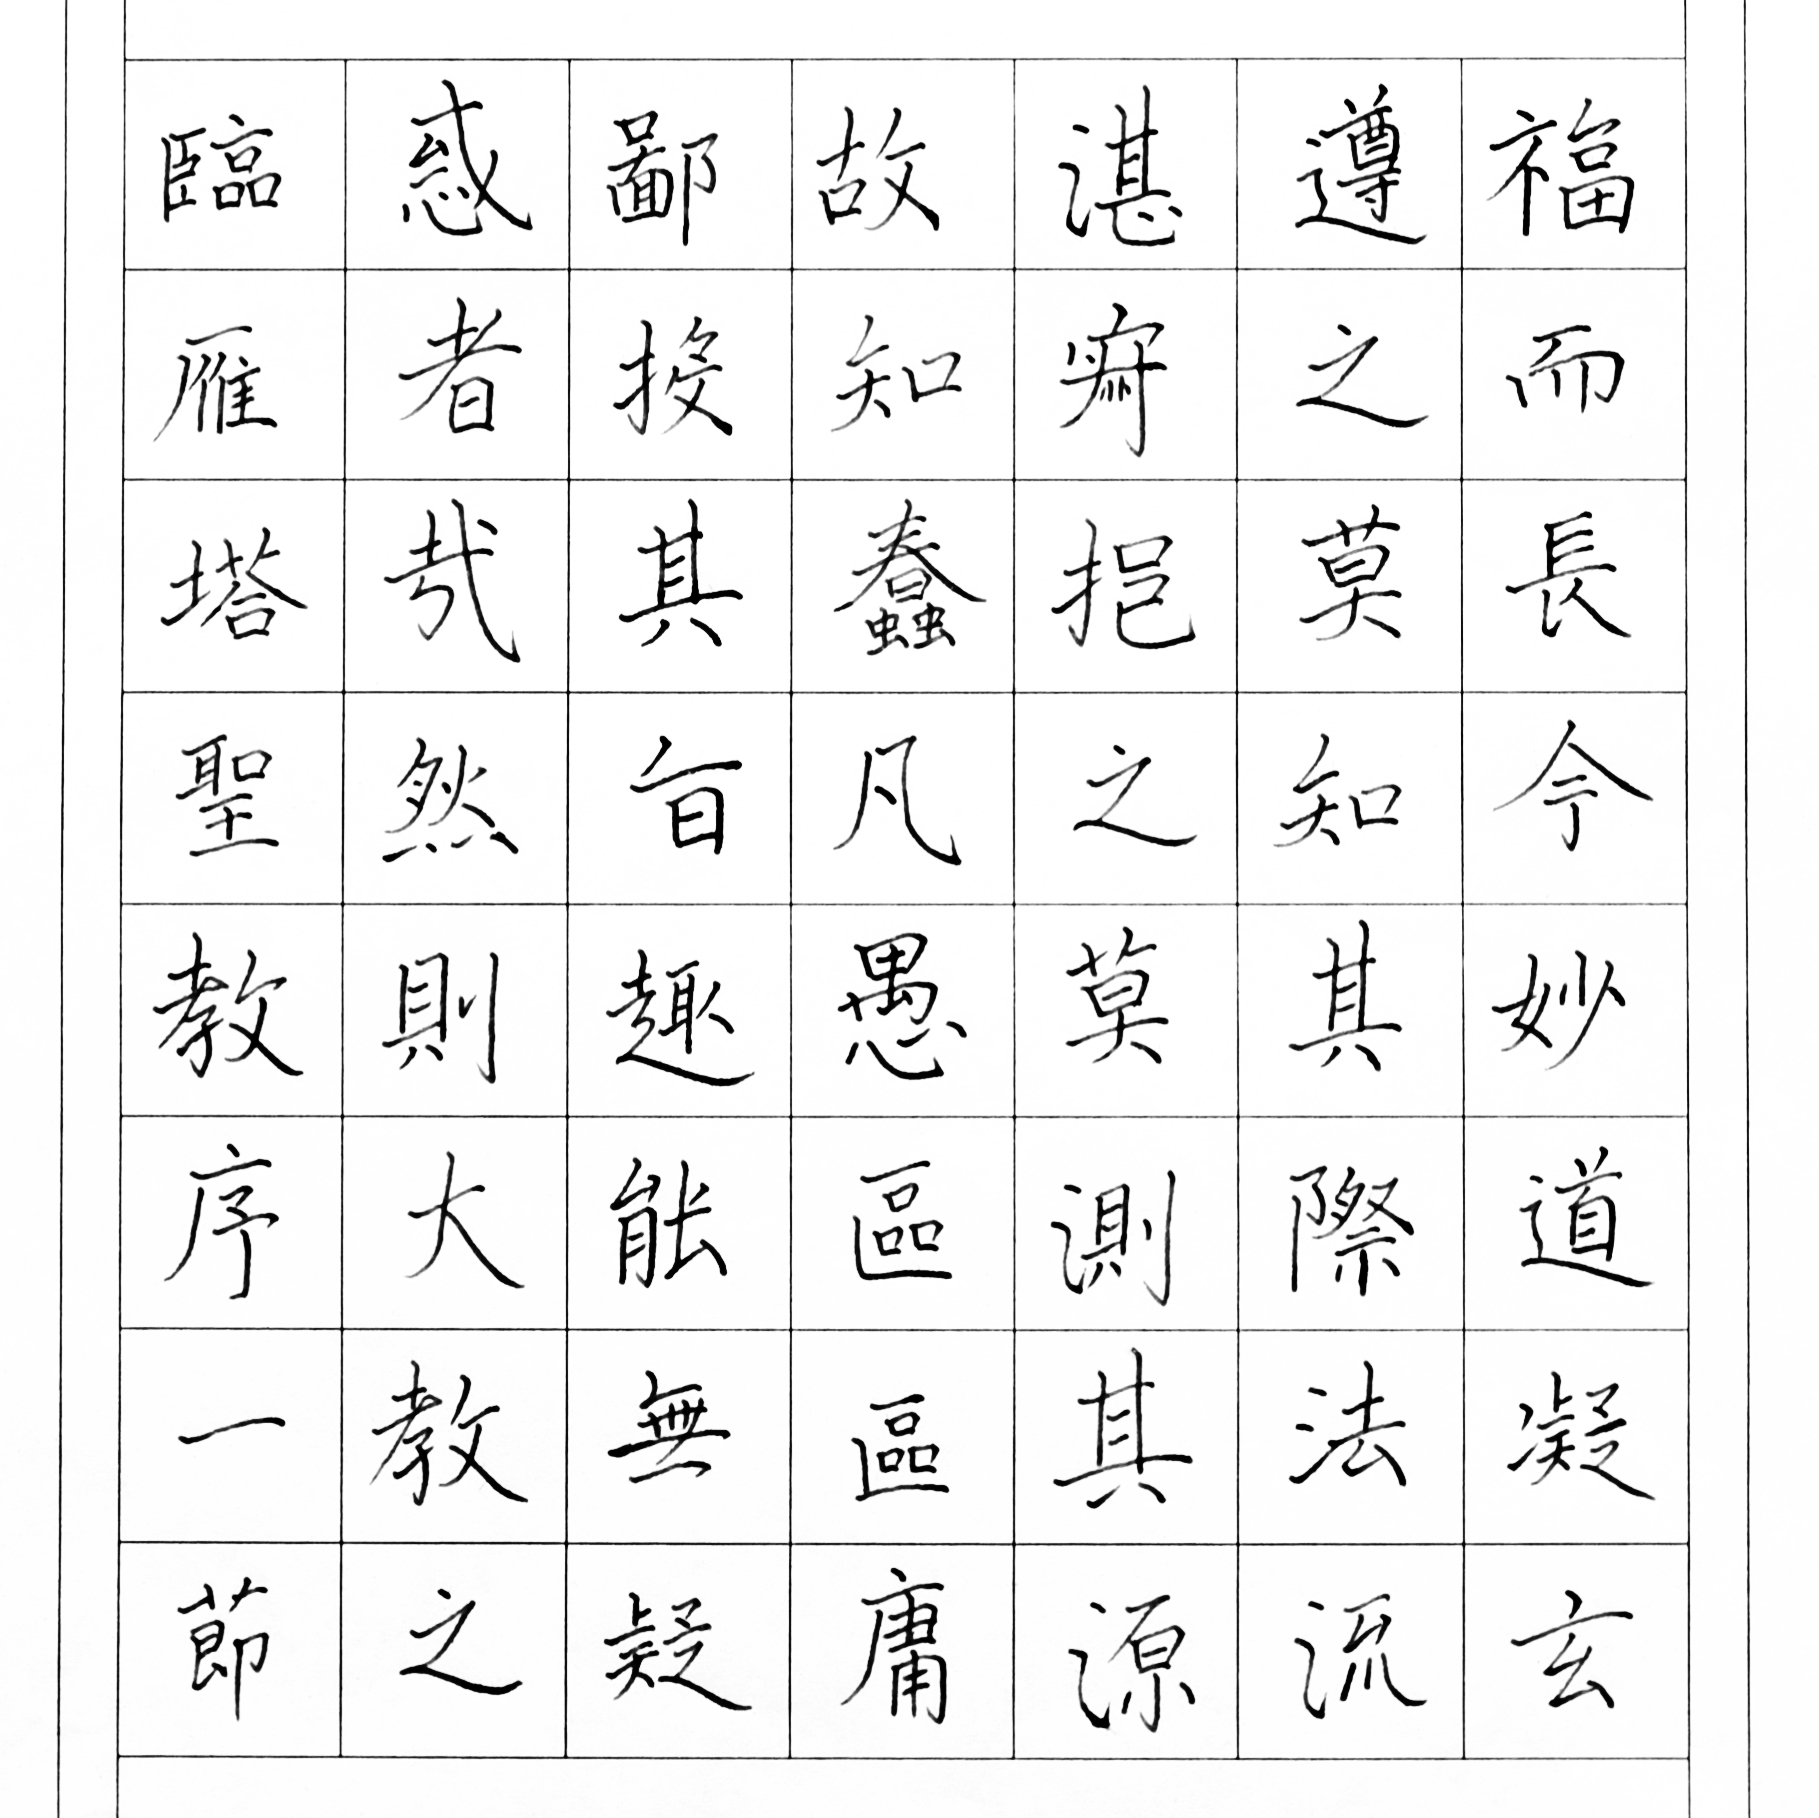 福而長今妙道凝玄
遵之莫知其際法流
湛寂挹之莫測其源
故知蠢凡愚區區庸
鄙投其旨趣能無疑
惑者哉然則大教之
臨雁塔聖教序一節